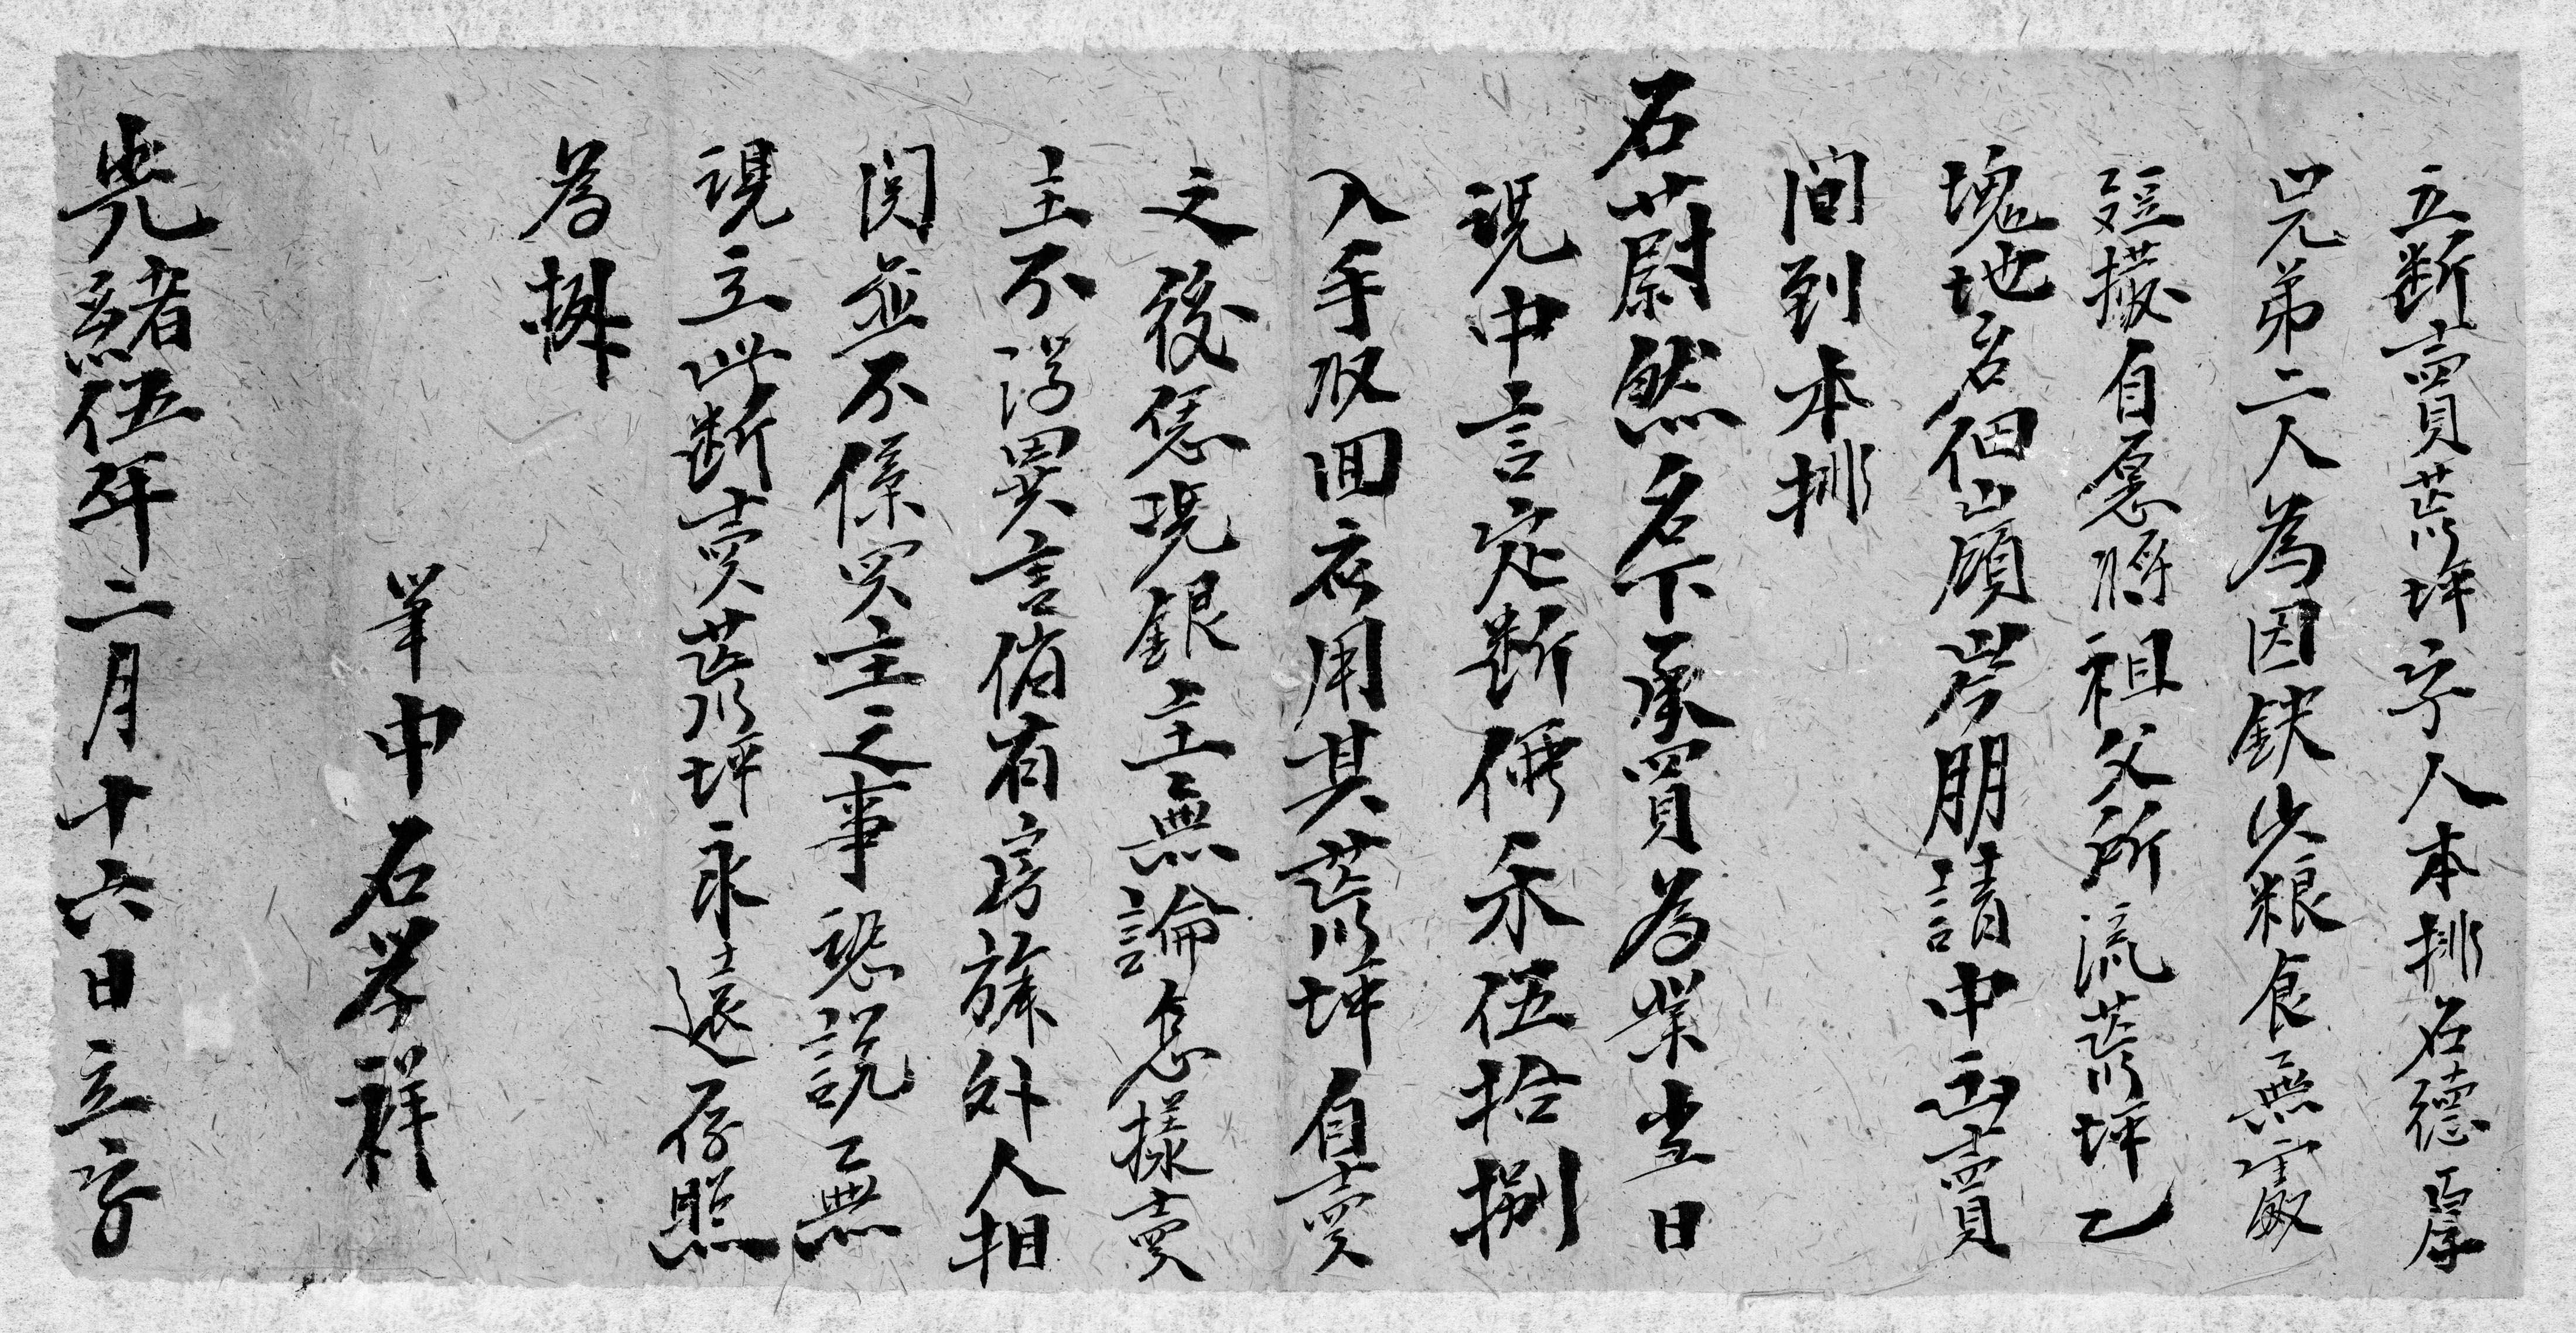 立断賣荒坪字人本排石德厚
兄弟二人為因缺少粮食無
自愿将祖父所流荒坪乙
塊地名佃山頭岑朋請中出賣
间到本排
石蔚然名下承買為業当日
凴中言定断價禾伍拾捌
入手收回衣用其荒坪自賣
之後凴現銀主無論怎樣賣
主不得異言倘有房族外人相
関並不係買主之事恐説無
凴立此断賣荒坪永遠存照
為據
筆中石孝祥
光緒伍年二月十六日立字